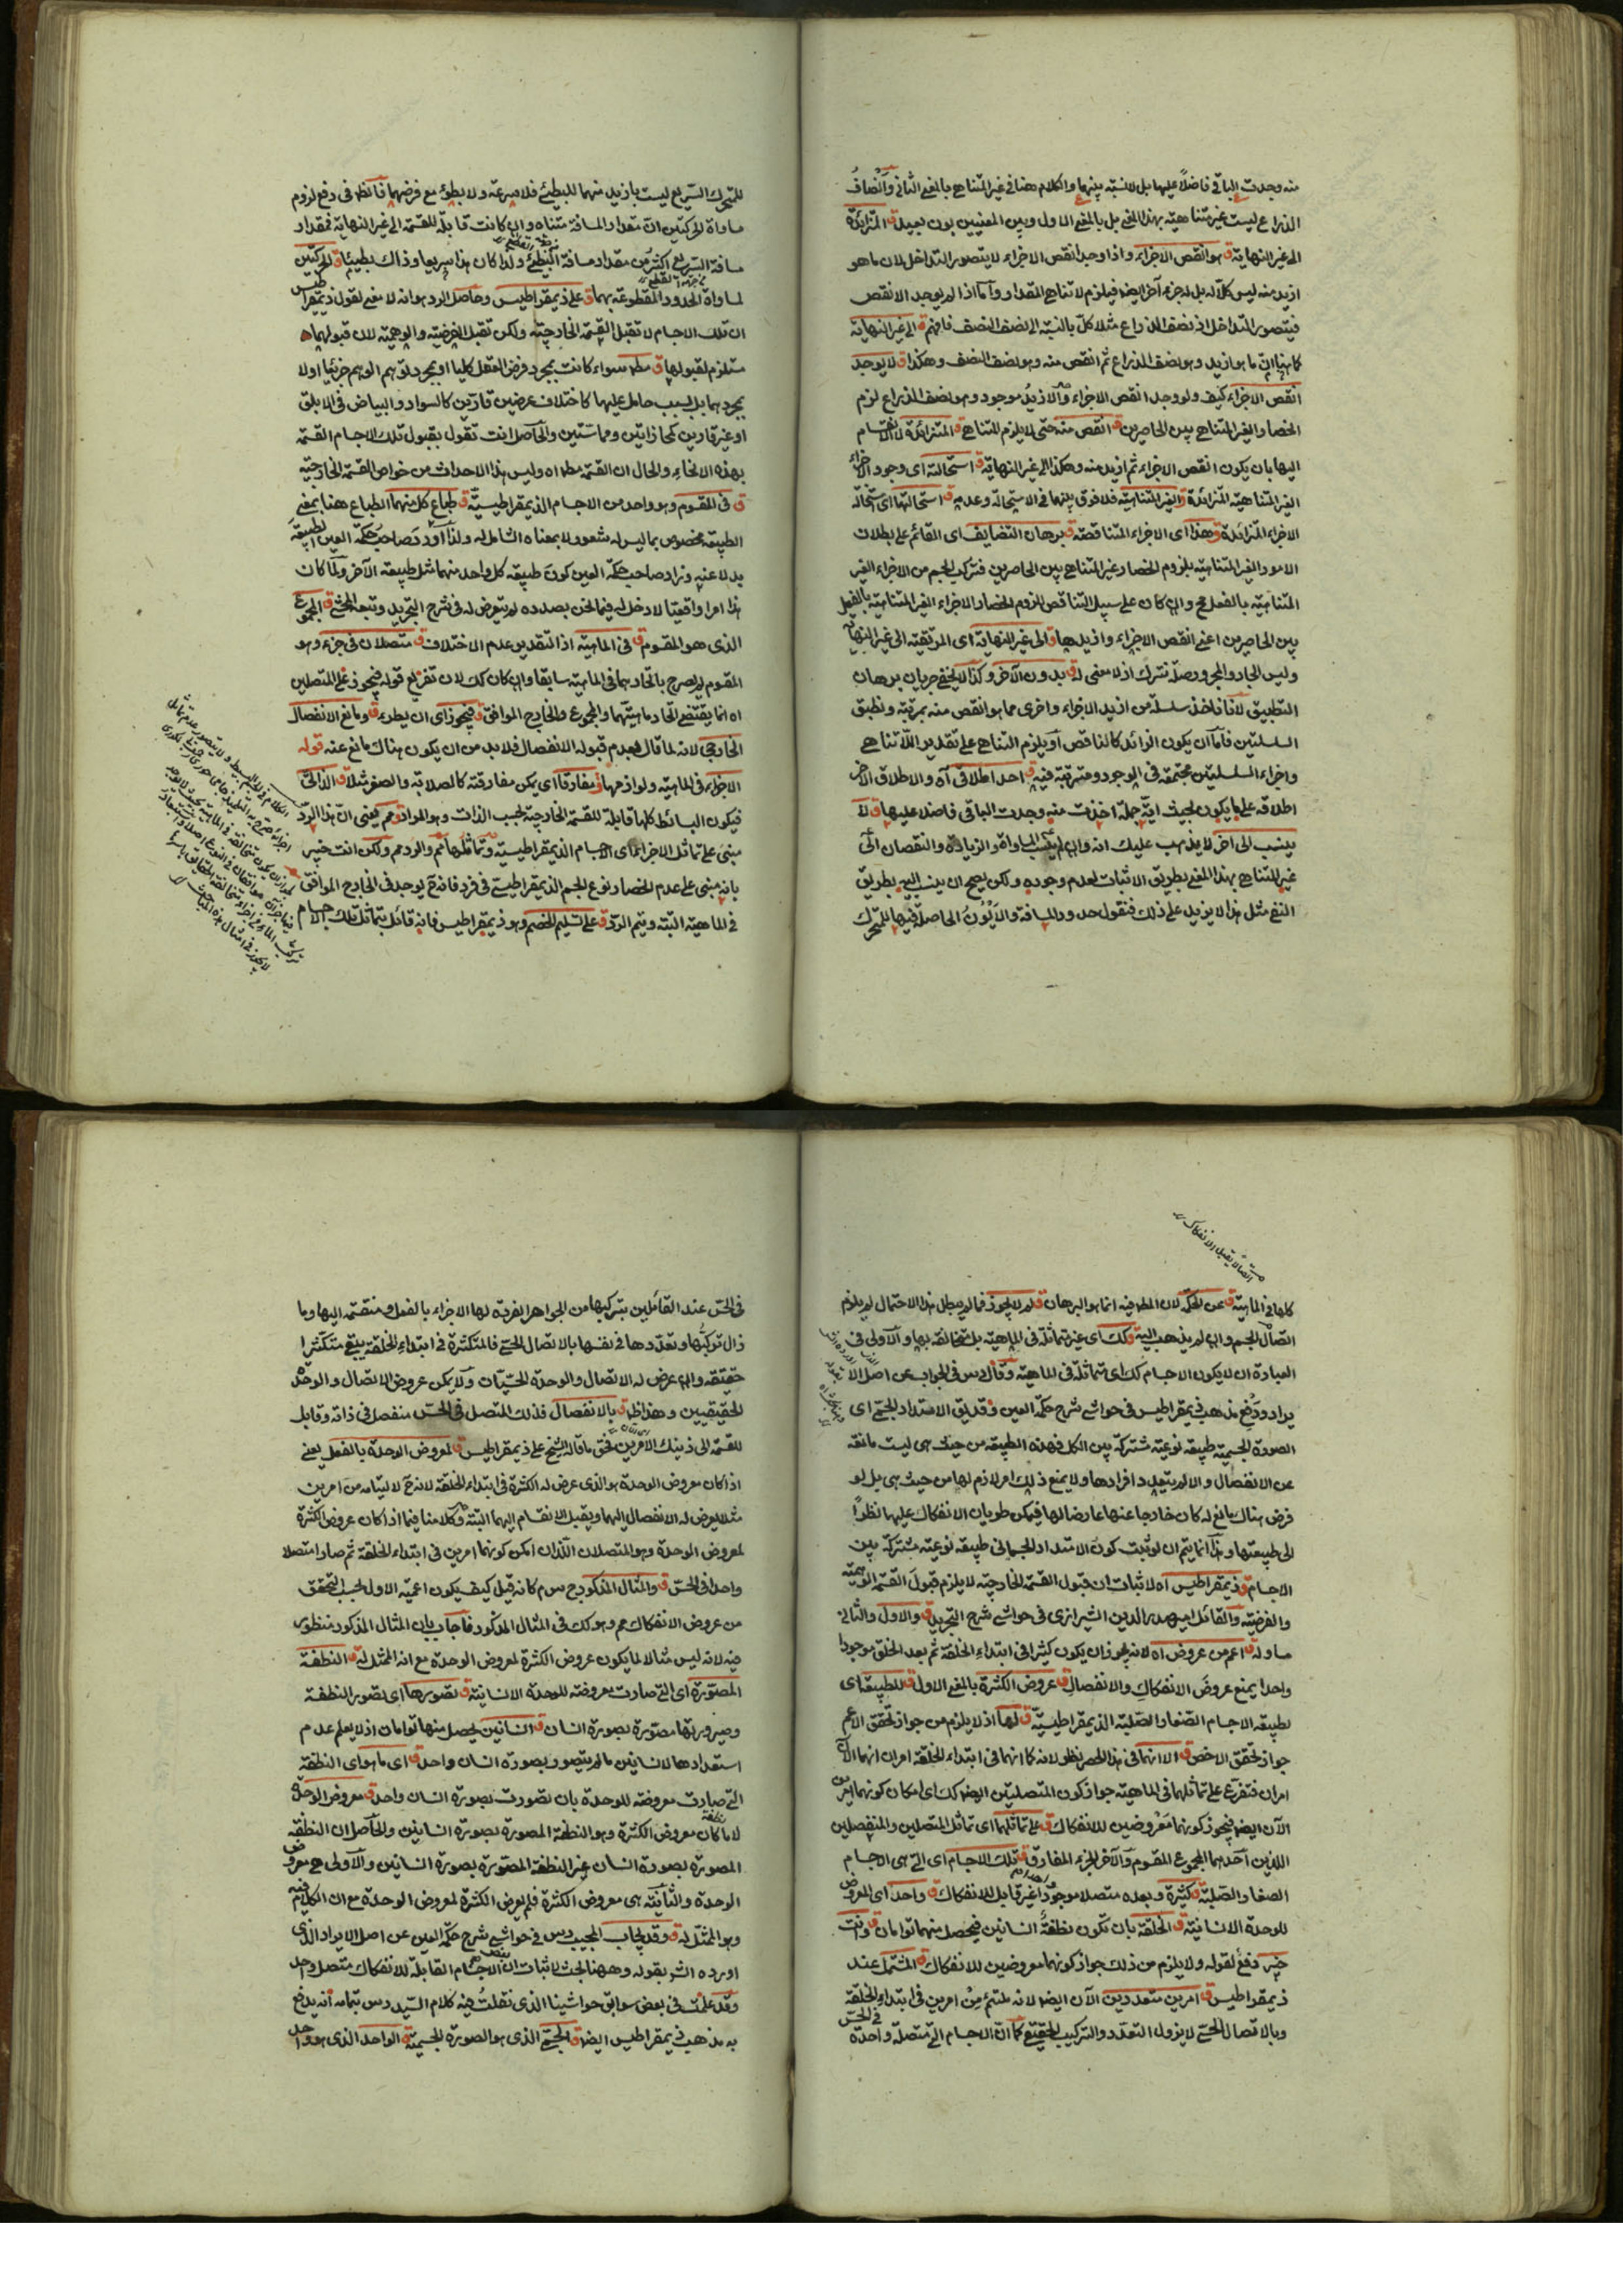 منه وجدت الباقي فاضلا عليها بل لا نسبة بينهما والكلام هنا في غير المتناهي بالمعنى الثاني وانصاف
الذراع ليست غير متناهية بهذا المعنى بل بالمعنى الاول وبين المعنيين بون بعيد ق المتزائدة
الى غير النهاية ق هو انقص الاجزاء واذا وجد انقص الاجزاء لا يتصور التداخل لان ما هو
ازيد منه ليس كلا له بل له جزء آخر ايضا فيلزم لا تناهي المقدار واما اذا لم يوجد الانقص
فيتصور التداخل اذ نصف الذراع مثلا كل بالنسبة الى نصف النصف فافهم ق الى غير النهاية
كما هنا ان ما هو ازيد وهو نصف الذراع ثم انقص منه وهو نصف النصف وهكذا ق لا يوجد
انقص الاجزاء كيف ولو وجد انقص الاجزاء والازيد موجود وهو نصف الذراع لزم
انحصار الغير المتناهي بين الحاصرين ق انقص منه حتى لا يلزم التناهي ق المتزائدة لا الانقسام
اليها بان يكون انقص الاجزاء ثم ازيد منه وهكذا الى غير النهاية ق استحالته اى وجود الاجزاء
الغير المتناهية المتزائدة والغير المتناهية فلا فرق بينهما في الاستحالة وعدمه ق استحالتها اى استحالة
الاجزاء المتزائدة ق وهذا اى الاجزاء المتناقصة ق برهان التضايف اى القائم على بطلان
الامور الغير المتناهية بلزوم انحصار غير المتناهي بين الحاصرين فتركب الجسم من الاجزاء الغير
المتناهية بالفعل مح وان كان على سبيل التناقص للزوم انحصار الاجزاء الغير المتناهية بالفعل
بين الحاصرين اعنى انقص الاجزاء وازيدها ق والى غير النهاية اى المرتقية الى غير النهاية
وليس الجار والمجرور صلة نترك اذ لا معنى له ق بدون الآخر وكذا لا يخفى جريان برهان
التطبيق لانا ناخذ سلسلة من ازيد الاجزاء واخرى مما هو انقص منه بمرتبة ونطبق
السلسلتين فاما ان يكون الزائد كالناقص او يلزم التناهي على تقدير اللاتناهي
واجزاء السلسلتين مجتمعة في الوجود ومترتبة فيه ق احد اطلاقى آه والاطلاق الآخر
اطلاقه على ما يكون بحيث اية جملة اخذت منه وجدت الباقي فاضلا عليها ق لا
ينسب الى آخر لا يذهب عليك انه وان لم ينسب المساواة والزيادة والنقصان الى
غير المتناهي بهذا المعنى بطريق الاثبات لعدم وجوده ولكن يصح ان ينسب اليه بطريق
النفي مثل هذا لا يزيد على ذلك فنقول حدود المسافة والايون الحاصلة فيها للمتحرك
للمتحرك السريع ليست بازيد منهما للبطيئ فلا سرعة ولا بطوء مع فرضهما فانظر في دفع لزوم
مساواة الحركتين ان مقدار المسافة متناه وان كانت قابلة للقسمة الى غير النهاية فمقدار
مسافة السريع اكثر من مقدار مسافة البطيئ ولذا كان هذا سريعا وذاك بطيئا ق الحركتين
لمساواة الحدود المقطوعة بهما ق على ذيمقراطيس وحاصل الرد هو انه لا معنى لقول ذيمقراطيس
ان تلك الاجسام لا تقبل القسمة الخارجية ولكن تقبل الفرضية والوهمية لان قبولهما
مستلزم لقبولها ق مطم سواء كانت بمجرد فرض العقل كليا او بمجرد توهم الوهم جزئيا او لا
بمجردهما بل بسبب حامل عليها كاختلاف عرضين قارين كالسواد والبياض في الابلق
او غير قارين كمحاذاتين ومماستين والحاصل انت تقول بقبول تلك الاجسام القسمة
بهذه الانحاء والحال ان القسمة مطم اه وليس هذا الاحداث من خواص القسمة الخارجية
ق في المقسوم وهو واحد من الاجسام الذيمقراطيسية ق طباع كل منهما الطباع هنا بمعنى
الطبيعة مخصوص بما ليس له شعور ولا بمعناه الشامل له ولذا اورد صاحب حكمة العين الطبيعة
بدلا عنه وزاد صاحب حكمة العين كون طبيعة كل واحد منهما مثل طبيعة الآخر ولما كان
هذا امرا واقعيا لا دخل له فيما نحن بصدده لم يتعرض له في شرح التجريد وتبعه المحشى ق المجموع
الذى هو المقسوم ق في الماهية اذ التقدير عدم الاختلاف ق متصلان في جزء وهو
المقسوم لم يصرح باتحادهما في الماهية سابقا وان كان كك لان تفريع قوله فيجوز على المتصلين
اه انما يقتضى اتحاد ماهيتهما والمجموع والخارج الموافق ق فيجوز اى ان يطرء ق ومانع الانفصال
الخارجى لانه لما قال بعدم قبوله الانفصال فلا بد من ان يكون هناك مانع عنه قوله
الاجزاء في الماهية ولوازمها ق مفارقا اى يمكن مفارقته كالصلابة والصغر مثلا ق الذاتى
فيكون البسائط كلها قابلة للقسمة الخارجية بحسب الذات وهو المراد ق مم يعنى ان هذا الرد
مبنى على تماثل الاجزاء اى الاجسام الذيمقراطيسية وتماثلها مم والرد مم ولكن انت خبير
بانه مبنى على عدم انحصار نوع الجسم الذيمقراطيسى في فرد فانه ح يوجد في الخارج الموافق
في الماهية البتة ويتم الرد ق على تسليم الخصم وهو ذيمقراطيس فانه قائل بتماثل تلك الاجسام
اتصالا يقبل الانفكاك
كلها في الماهية ق عن الحكم لان المطم فيه انما هو البرهان ق فلم لا يجوز فما لم يبطل هذا الاحتمال لم يلزم
اتصال الجسم وان لم يذهب اليه ق وكك اى غير متماثلة في الماهية بل متخالفة بها والاولى في
العبارة ان لا يكون الاجسام كك اى متماثلة في الماهية وقال س في الجواب عن اصل الا
يراد ودفع مذهب ذيمقراطيس في حواشى شرح حكمة العين وقد يق الامتداد الجسمى اى
الصورة الجسمية طبيعة نوعية مشتركة بين الكل فهذه الطبيعة من حيث هى ليست مانعة
عن الانفصال والا لم يتعدد افرادها ولا يمنع ذلك امر لازم لها من حيث هى بل لو
فرض هناك مانع له كان خارجا عنها عارضا لها فيمكن طريان الانفكاك عليها نظرا
الى طبيعتها وهذا انما يتم ان لو ثبت كون الامتداد الجسمانى طبيعة نوعية مشتركة بين
الاجسام ق وذيمقراطيس اه لاثبات ان قبول القسمة الخارجية لا يلزم قبول القسمة الوهمية
والفرضية والقائل السيد صدر الدين الشيرازى في حواشى شرح التجريد ق والاول والثانى
مساو له ق اعم من عروض اه لانه يجوز ان يكون كثيرا في ابتداء الخلقة ثم بعد الخلق موجودا
واحدا يمنع عروض الانفكاك والانفصال ق عروض الكثرة بالمعنى الاول ق للطبيعة اى
بطبيعة الاجسام الصغار الصلبة الذيمقراطيسية ق لها اذ لا يلزم من جواز تحقق الاعم
جواز تحقق الاخص ق الا انهما في هذا الحصر نظر لانه كما انهما في ابتداء الخلقة امران انهما الآن
امران فتفرع على تماثلهما في الماهية جواز كون المتصلتين ايضا كك اى امكان كونهما امرين
الآن ايضا فيجوز كونهما معروضين للانفكاك ق على تماثلهما اى تماثل المتصلين والمنفصلين
اللذين احدهما المجموع المقسوم والآخر الجزء المفارق ق تلك الاجسام اى التى هى الاجسام
الصغار الصلبة ق كثيرة وبعده متصلا موجودا غير قابل للانفكاك ق واحد اى المعروض
للوحدة الانسانية ق الخلقة بان تكون نطفة انسانين فيحصل منهما توأمان ق وانت
خبير دفع لقوله ولا يلزم من ذلك جواز كونهما معروضين للانفكاك ق المشتمل عند
ذيمقراطيس ق امرين متعددين الآن ايضا لانه ملتئم من امرين في ابتداء الخلقة
وبالاتصال الحسى لا يزول التعدد والتركيب الحقيقى كما ان الاجسام التى متصلة واحدة في الحس
في الحس عند القائلين بتركبها من الجواهر الفردة لها الاجزاء بالفعل ومنقسمة اليها وما
زال تركبها وتعددها في نفسها بالاتصال الحسى فالمتكثرة في ابتداء الخلقة يبقى متكثرا
حقيقة وان عرض له الاتصال والوحدة الحسيان ولا يمكن عروض الاتصال والوحدة
الحقيقيين وهذا ظ ق بالانفصال فذلك المتصل في الحس منفصل في ذاته وقابل
للقسمة الى ذينك الامرين فحق ما قاله الشيخ على ذيمقراطيس ق لمعروض الوحدة بالفعل يعنى
اذا كان معروض الوحدة هو الذى عرض له الكثرة في ابتداء الخلقة لانه ح لالتيامه من امرين
مثلا يعرض له الانفصال اليهما ويقبل الانقسام اليهما البتة وكلامنا فيما اذا كان عروض الكثرة
لمعروض الوحدة وهو المتصلان اللذان امكن كونهما امرين في ابتداء الخلقة ثم صارا متصلا
واحدا في الحس ق والمثال المذكور ح س م كانه قيل كيف يكون اعمية الاول بحسب التحقق
من عروض الانفكاك مم وهو كك في المثال المذكور فاجاب بان المثال المذكور منظور
فيه لانه ليس مثالا لما يكون عروض الكثرة لمعروض الوحدة مع انه الممثل له ق النطفة
المصورة اى التى صارت معروضة للوحدة الانسانية ق تصورها اى تصور النطفة
وصيرورتها مصورة بصورة انسان ق انسانين يحصل منها توأمان اذ لا يعلم عدم
استعدادها لانسانين ما لم يتصور بصورة انسان واحد ق اى ما هو اى النطفة
التى صارت معروضة للوحدة بان تصورت بصورة انسان واحد ق معروض الوحدة
لا ما كان معروض الكثرة وهو النطفة المصورة بصورة انسانين والحاصل ان النطفة
المصورة بصورة انسان غير النطفة المصورة بصورة انسانين والاولى هى معروض
الوحدة والثانية هى معروض الكثرة فلم يعرض الكثرة لمعروض الوحدة مع ان الكلام فيه
وهو الممثل له ق وقد يجاب المجيب س في حواشى شرح حكمة العين عن اصل الايراد الذى
اورده الش بقوله وههنا بحث لاثبات ان الاجسام القابلة للانفكاك متصل واحد
وقد علمت في بعض سوابق حواشينا الذى نقلت فيه كلام السيد س بتمامه انه يدفع
به مذهب ذيمقراطيس ايضا ق الجسمى الذى هو الصورة الجسمية ق الواحد الذى هو واحد